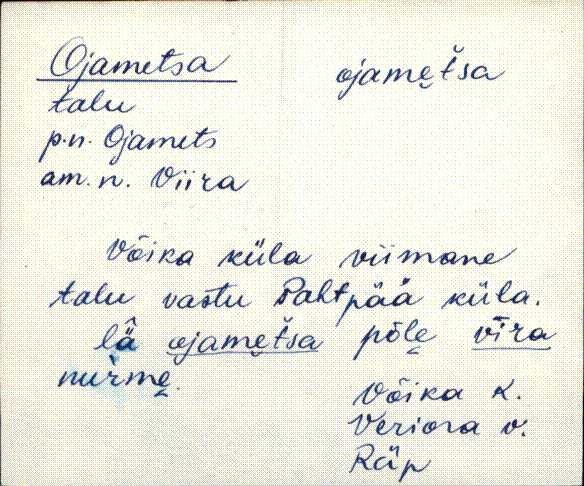 Ojametsa
ojamẹt̆sa
talu
p.n. Ojamets
am. n. Viira
Võika küla viimane
talu vastu Pahtpää küla.
lä̂ ojamẹt̆sa põlẹ vīra
nurmẹ.
Võika k.
Veriora v.
Räp